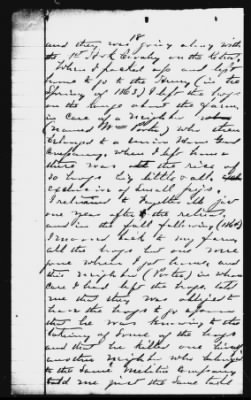 18
and they was going along with
the 1st Ark Cavalry on the
When I packed up and left
home to go to the Army (in the
Spring of 1863) I left the hogs
on the range about the farm
in care of a Neighbor
(named Wm Porter) who then
belonged to a Union Home Guard
Company. When I left home
there was the rise of
30 hogs big little & all
exclusive of small pigs.
I returned to Fayetteville just
one year after the retreat,
and in the fall following (1864)
I moved back to my farm
all the hogs but one were
gone when I got home, and
this Neighbor (Porter) in whose
care I had left the hogs told
me that they was obliged to
have the hogs &
that he was knowing to the
taking of some of the hogs
and that he killed one himself
another Neighbor who belonged
to the same Melitia Company
told me just the same tale